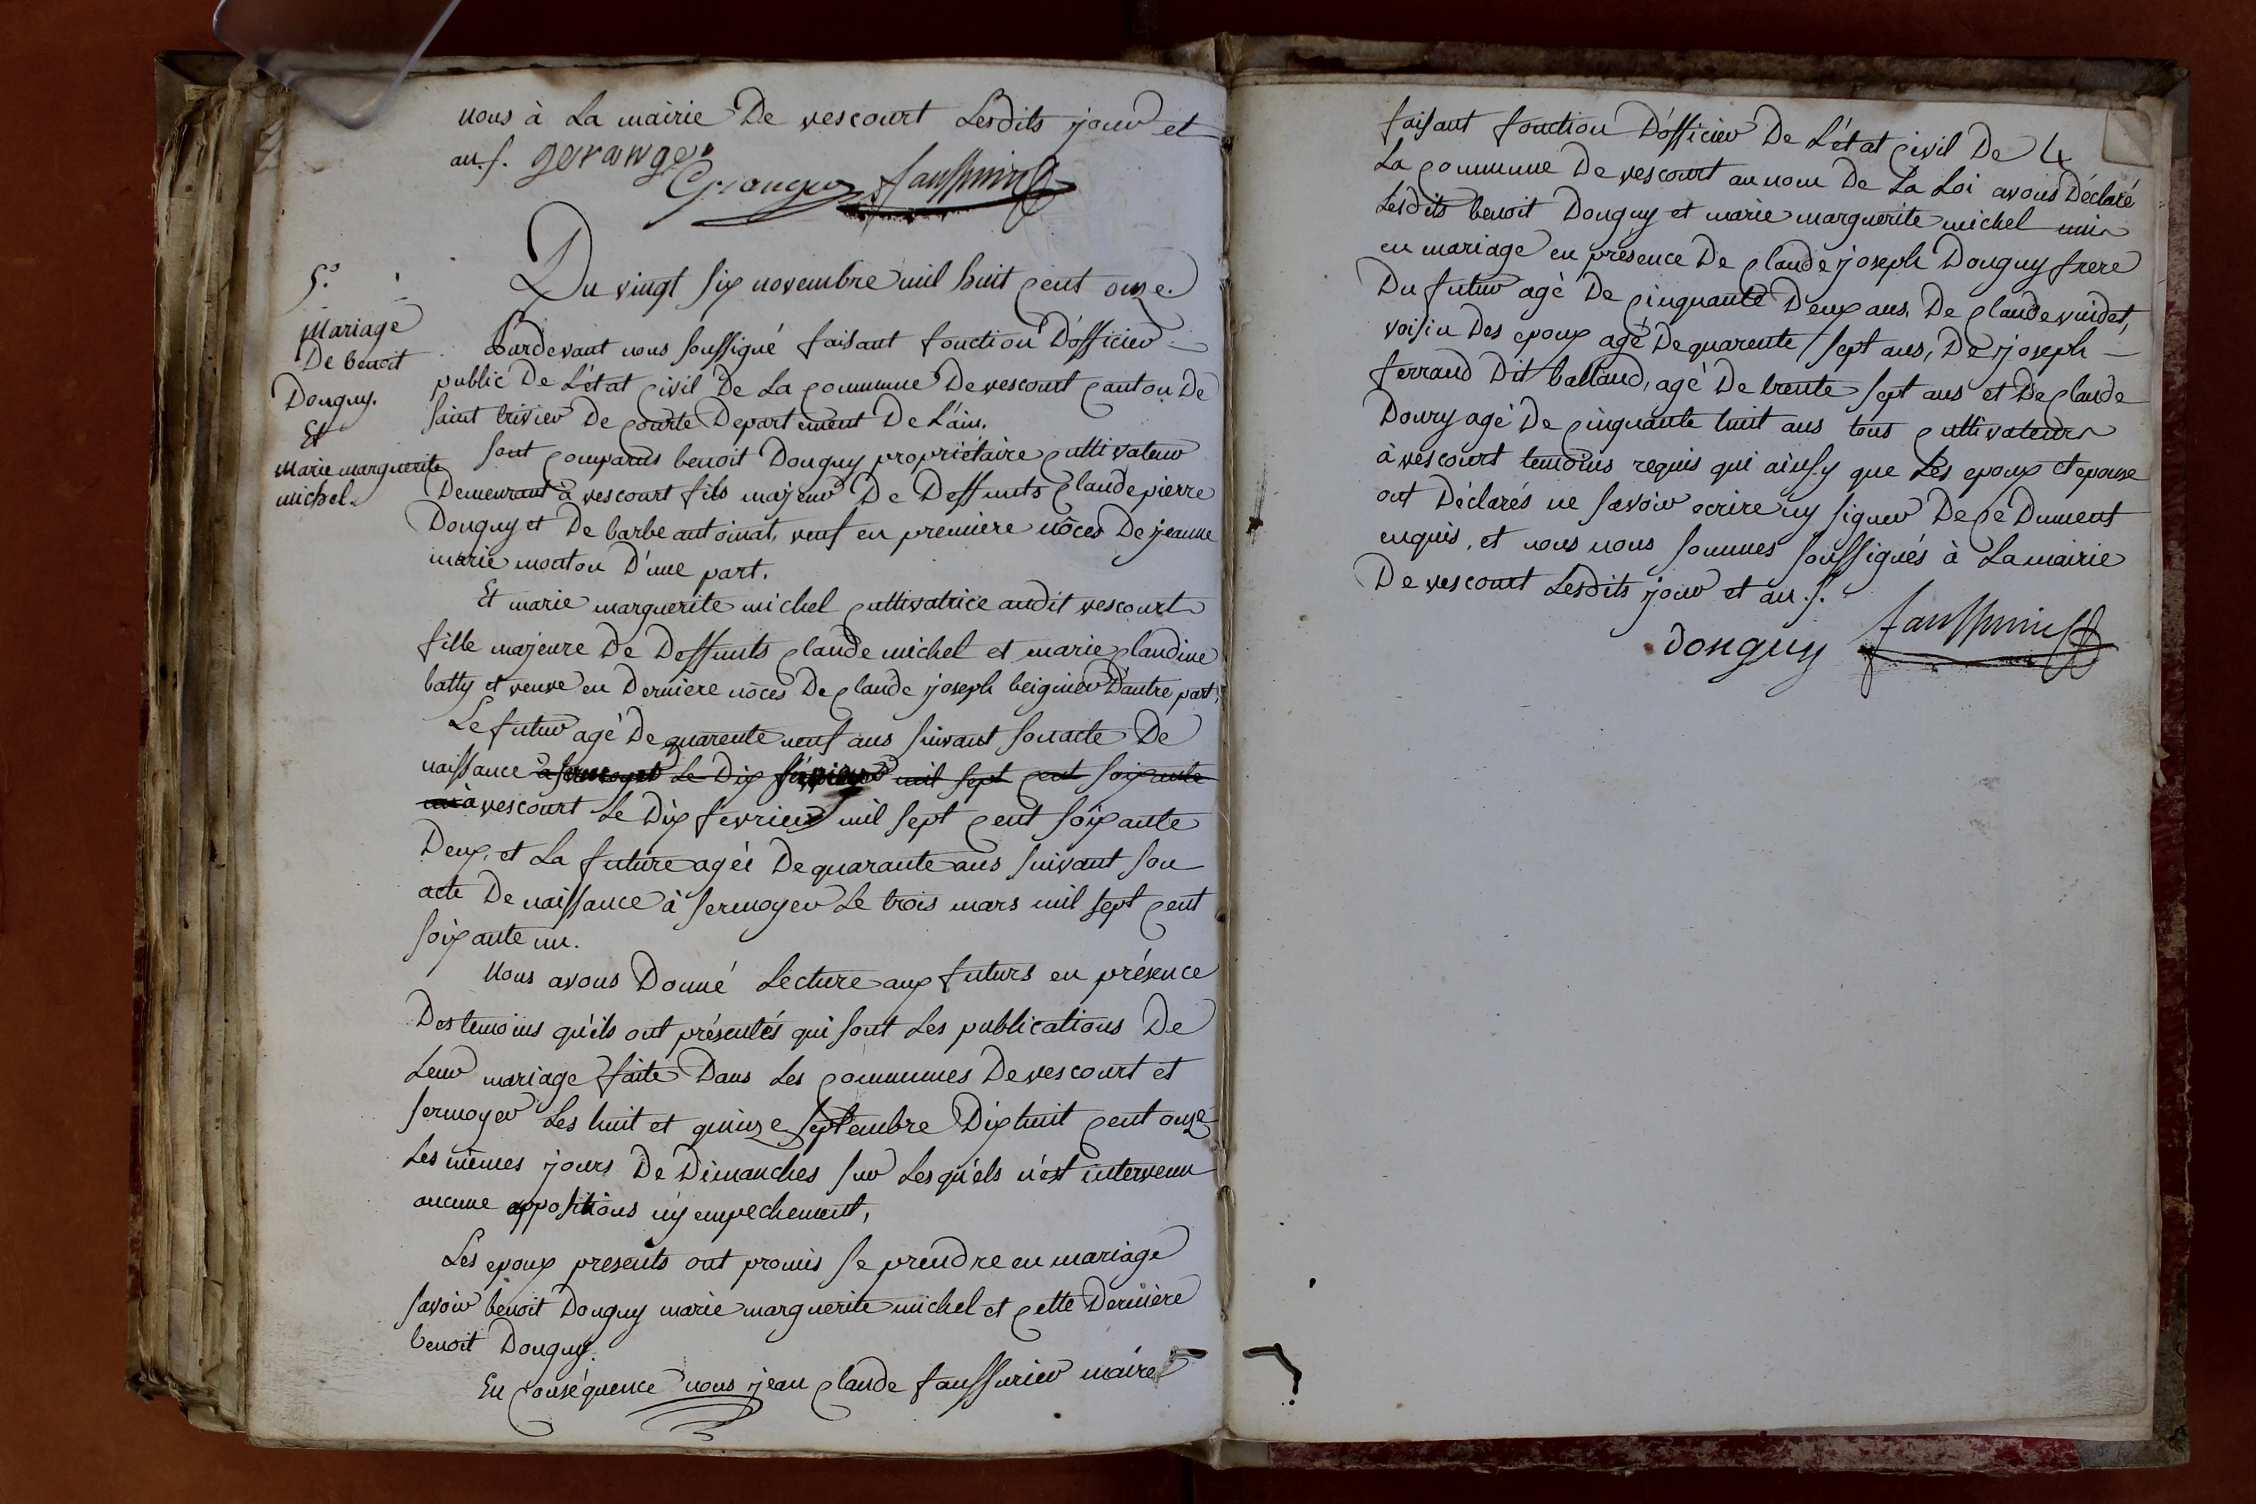 nous à La mairie De vescourt Lesdits jour et
an.f. geranger
Granger faussurier
5.°
Mariage
De benoit
Donguy.
Et
Marie marguerite
michel.
Du vingt six novembre mil huit cent onze.
Pardevant nous soussigné faisant fonction D'officier
public De L'état civil De La commune De vescourt canton De
saint trivier De courte Departement De L'ain.
sont comparus benoit Donguy propriétaire cultivateur
Demeurant à vescourt fils majeur De Deffunts Claude pierre
Donguy et De barbe antoinat, veuf en premiere nôces De jeanne
marie monton D'une part.
Et marie marguerite michel cultivatrice audit vescourt
fille majeure De Deffunts claude michel et marie claudine
batty et veuve en Derniere nôces De claude joseph beiginer D'autre part,
Le futur agé De quarente neuf ans suivant son acte De
naissance à sermoyer Le Dix février mil sept cent soixante
à vescourt Le Dix fevrier mil sept cent soixante
Deux, et La future agée De quarante ans suivant son
acte De naissance à sermoyer Le trois mars mil sept cent
soixante un.
Nous avons Donné Lecture aux futurs en présence
Des temoins qu'ils ont présentés qui sont Les publications De
Leur mariage faite Dans Les communes De vescourt et
sermoyer Les huit et quinze septembre Dix huit cent onze
Les mêmes jours De Dimanches sur Lesquels n'est intervenu
aucune oppositions n'y empechement,
Les epoux presents ont promis se prendre en mariage
savoir benoit Donguy marie marguerite michel et cette Dernière
benoit Donguy.
En conséquence nous jean claude faussurier maire
4
faisant fonction D'officier De L'état civil De
La commune De vescourt au nom De La Loi avons Déclaré
Lesdits benoit Donguy et marie marguerite michel unis
en mariage en présence De claude joseph Donguy frere
Du futur agé De cinquante Deux ans, De claude vuidet,
voisin Des epoux agé De quarente sept ans, De joseph
ferrand Dit balland, agé De trente sept ans et De claude
Doury agé De cinquante huit ans tous cultivateurs
à vescourt temoins requis qui ainsy que Les epoux et epouse
ont Déclarés ne savoir ecrire ny signer De ce Dument
enquis, et nous nous sommes soussignés à La mairie
De vescourt Lesdits jour et an.f.
donguy faussurier